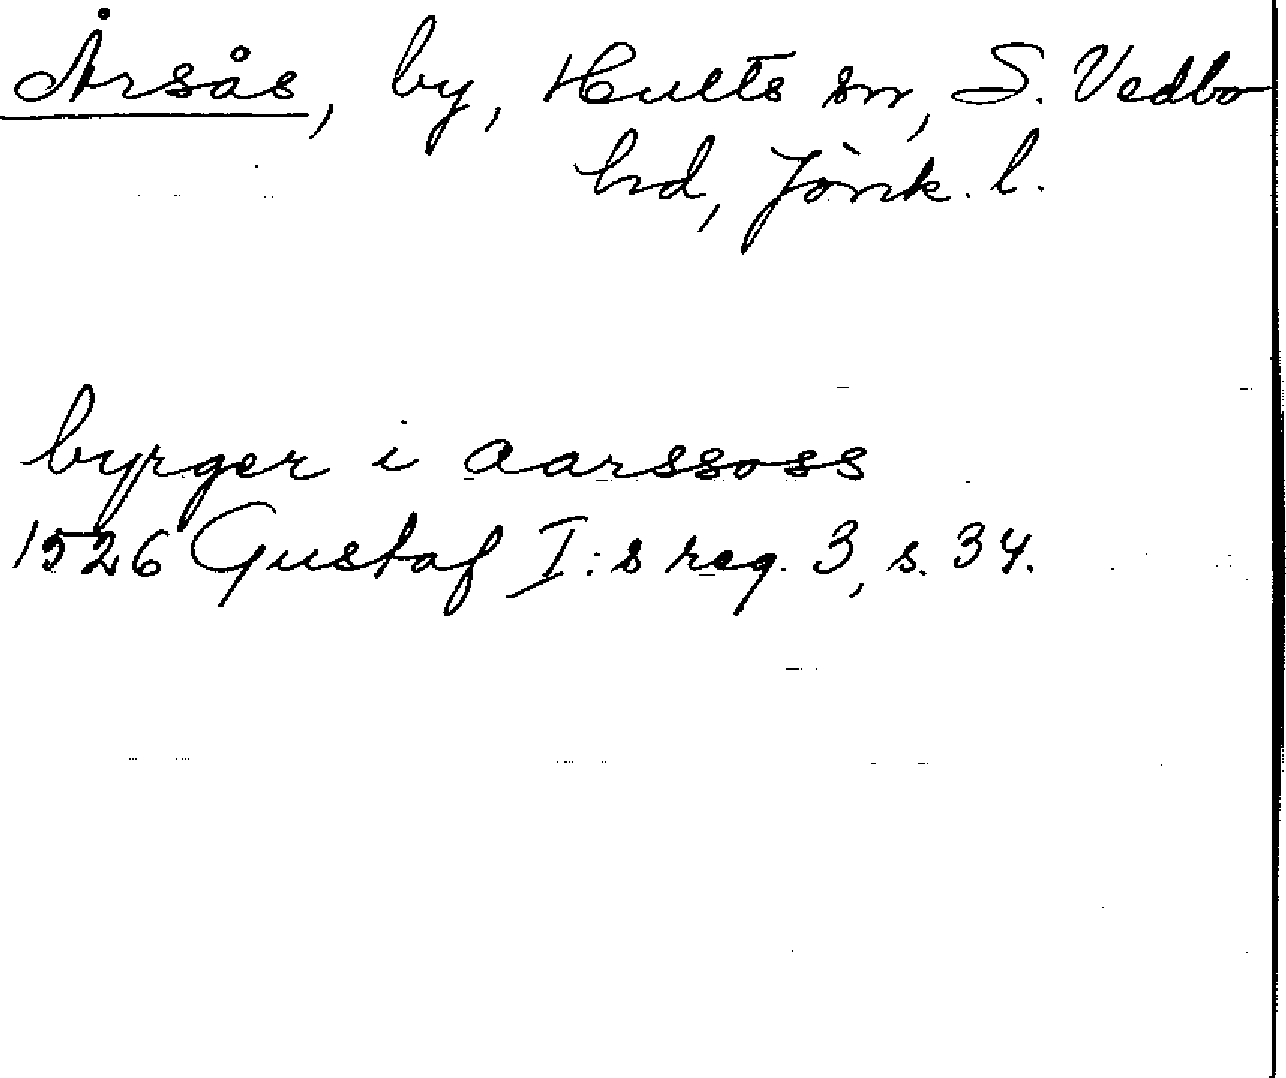 Årsås, by, Hults sn, S. Vedbo
hd, Jönk. l.
byrger i aarssoss
1526 Gustaf I:s reg. 3, s. 34.